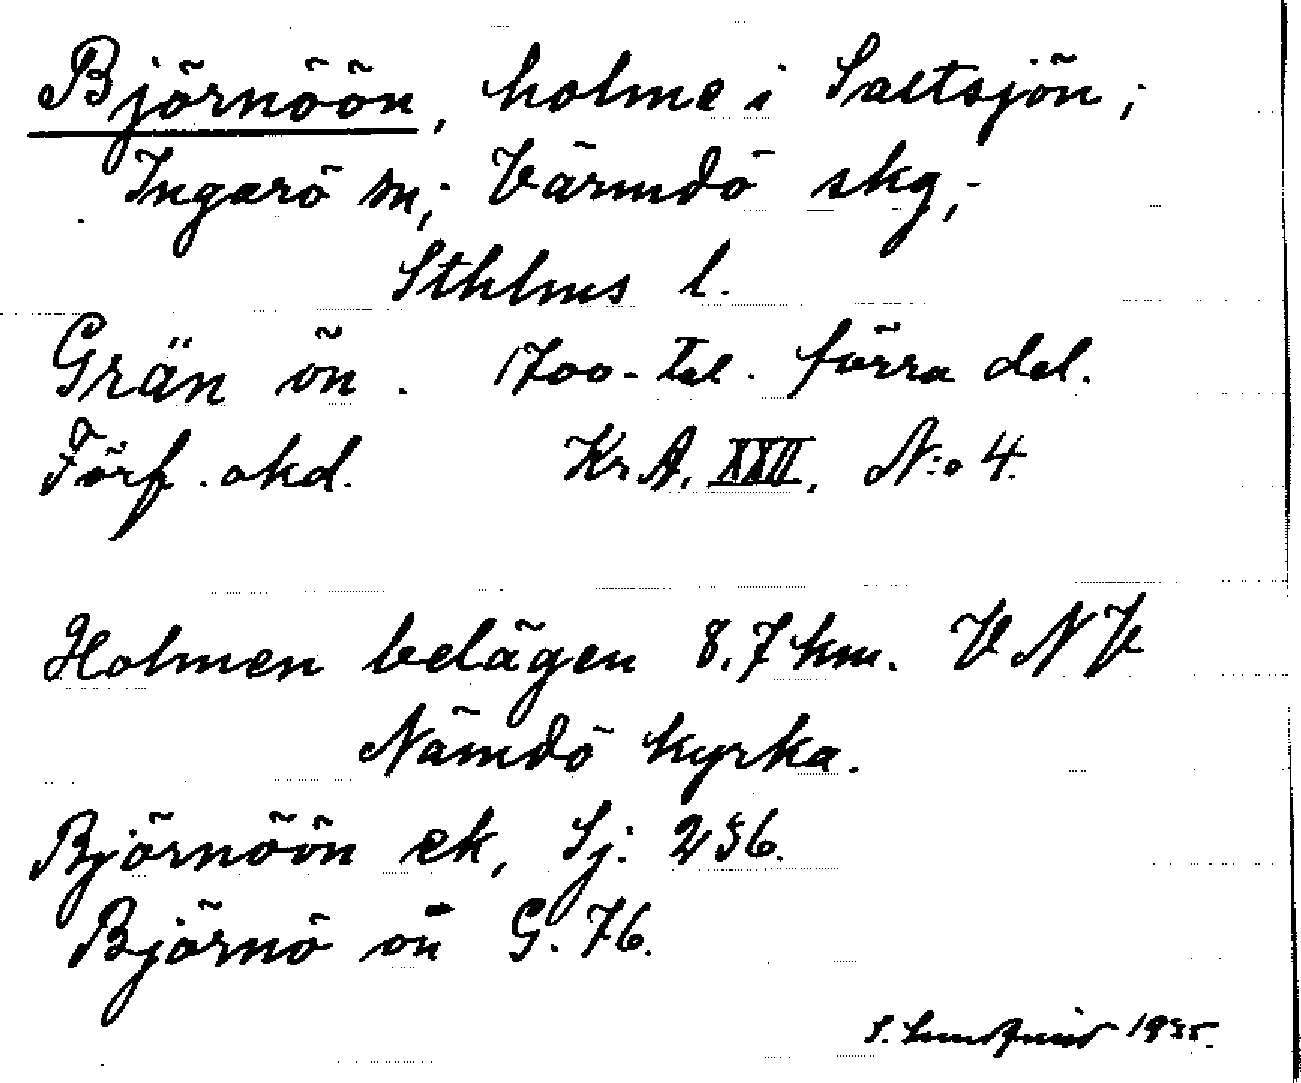 Björnöön, holme i Saltsjön;
Ingarö sn; Värmdö skg;
Sthlms l.
Grän ön. 1700-tal. förra del.
Förf. okd. Kr A. XXII. N:o 4.
Holmen belägen 8.7 km. V N V
Nämdö kyrka.
Björnöön ek, Sj: 256.
Björnö ön G. 76.
S. Lundquist 1935.